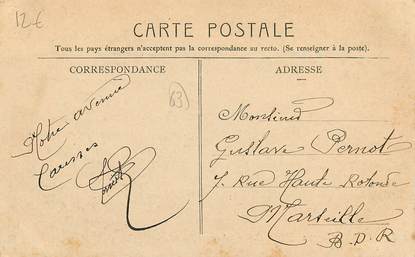 12€
CARTE POSTALE
Tous les pays étrangers n'acceptent pas la correspondance au recto. (Se renseigner à la poste).
CORRESPONDANCE
ADRESSE
63
Notre avenue
Caresses
Monsieur
Gustave Pernot
7. Rue Haute Rotonde
Marseille
B.D.R